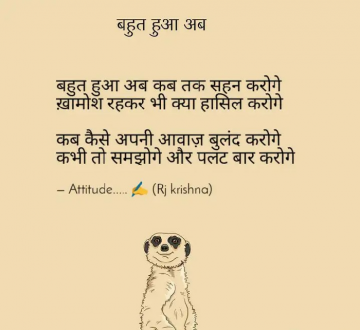 बहुत हुआ अब
बहुत हुआ अब कब तक सहन करोगे
ख़ामोश रहकर भी क्या हासिल करोगे
कब कैसे अपनी आवाज़ बुलंद करोगे
कभी तो समझोगे और पलट बार करोगे
– Attitude..... ✍ (Rj krishna)